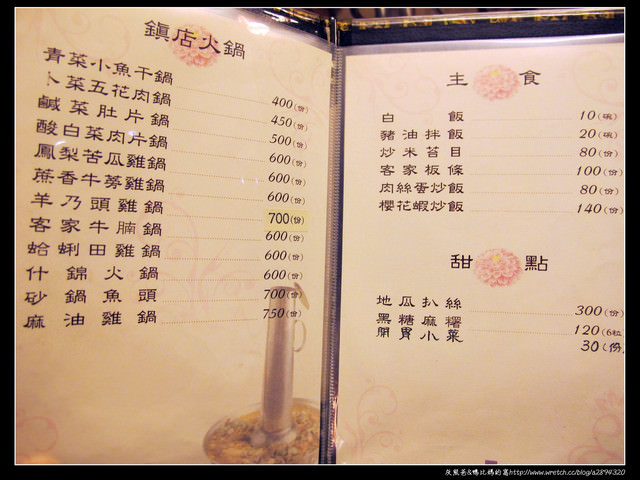 鎮店火鍋
青菜小魚干鍋 400(份)
卜菜五花肉鍋 450(份)
鹹菜肚片鍋 500(份)
酸白菜肉片鍋 600(份)
鳳梨苦瓜雞鍋 600(份)
蔗香牛蒡雞鍋 600(份)
羊乃頭雞鍋 700(份)
客家牛腩鍋 600(份)
蛤蜊田雞鍋 600(份)
什錦火鍋 600(份)
砂鍋魚頭 700(份)
麻油雞鍋 750(份)
主食
白飯 10(碗)
豬油拌飯 20(碗)
炒米苔目 80(份)
客家板條 100(份)
肉絲蛋炒飯 80(份)
櫻花蝦炒飯 140(份)
甜點
地瓜扒絲 300(份)
黑糖麻糬 120(6粒
開胃小菜 30(份)
灰熊爸&鴨比媽的窩http://www.wretch.cc/blog/a2894320